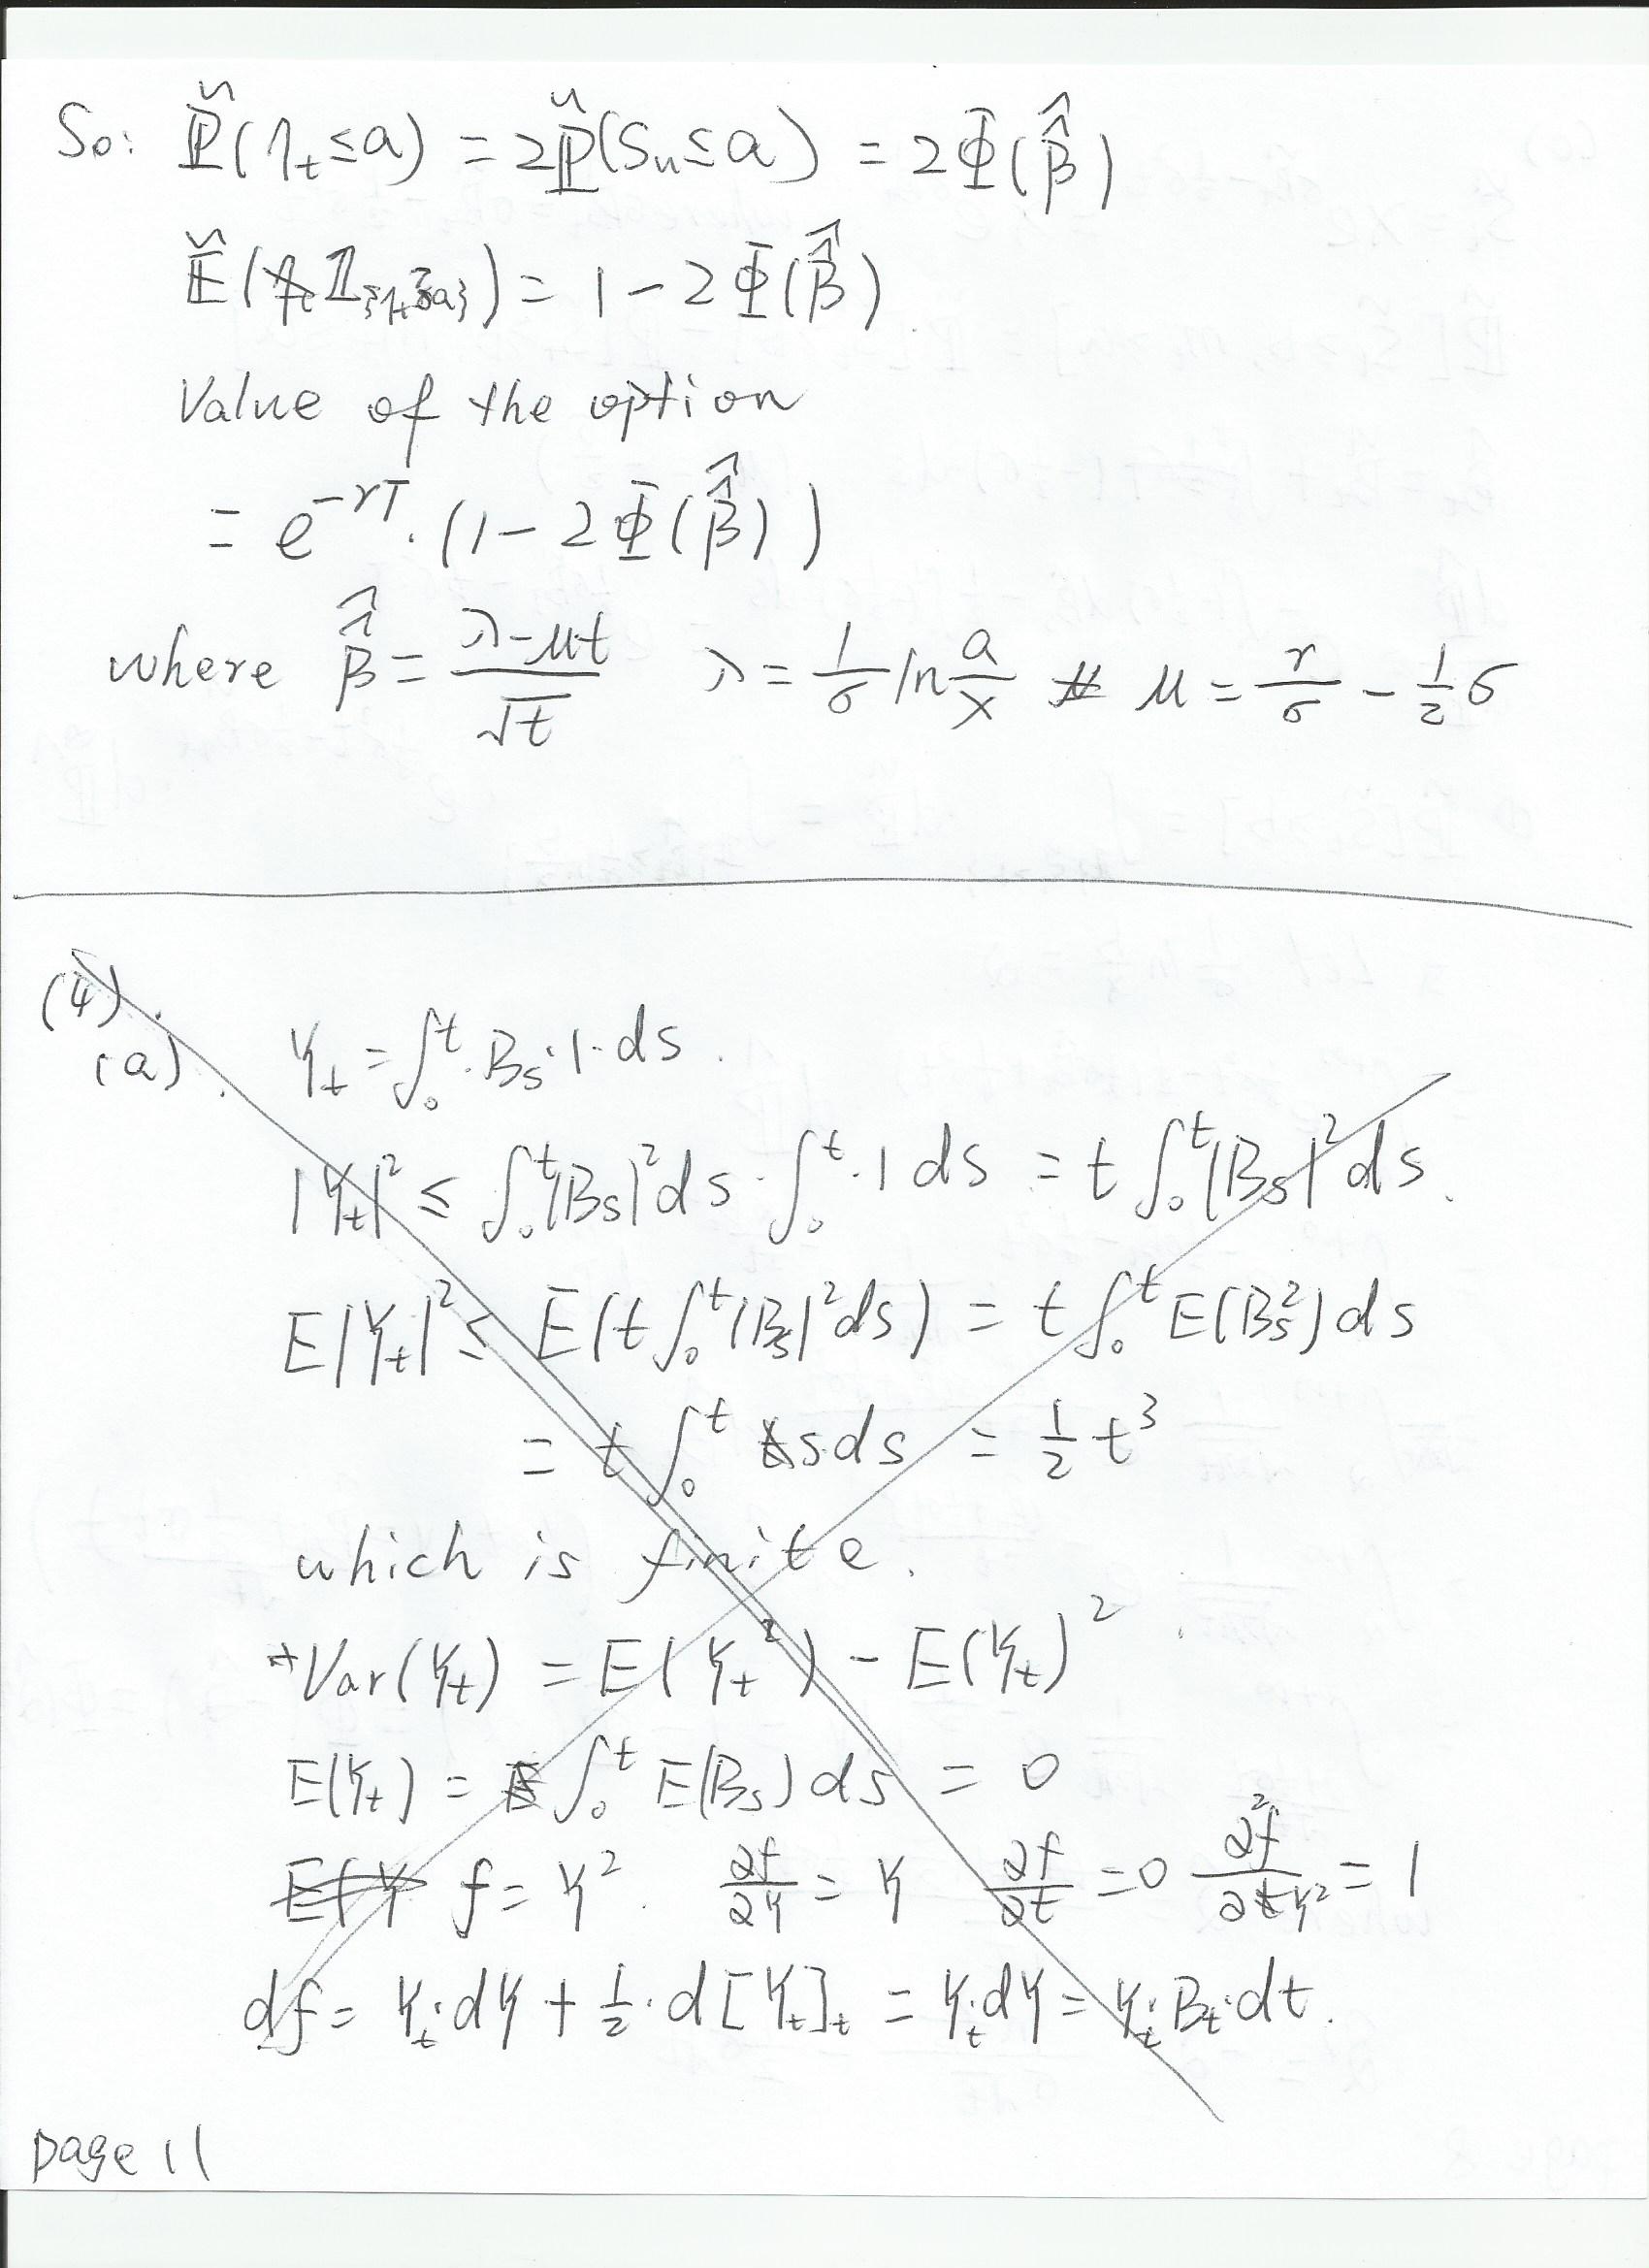 So: P̆(η_t ≤ a) = 2P̆(S_u ≤ a) = 2Φ(β̂̂)
Ĕ(𝟙_{η_t ≥ a}) = 1 - 2Φ(β̂̂).
Value of the option
= e^{-rT} · (1 - 2Φ(β̂̂))
where β̂̂ = (λ - μt)/√t λ = 1/σ ln a/x μ = r/σ - 1/2 σ
(4).
(a). Y_t = ∫_0^t · B_s · 1 · ds.
|Y_t|² ≤ ∫_0^t |B_s|² ds · ∫_0^t · 1 ds = t ∫_0^t |B_s|² ds.
E|Y_t|² ≤ E(t ∫_0^t |B_s|² ds) = t ∫_0^t E(B_s²) ds
= t ∫_0^t s ds = 1/2 t³
which is finite.
*Var(Y_t) = E(Y_t²) - E(Y_t)².
E(Y_t) = ∫_0^t E(B_s) ds = 0
E(Y f = Y². ∂f/∂Y = Y ∂f/∂t = 0 ∂²f/∂Y² = 1
df = Y_t · dY + 1/2 · d[Y_t]_t = Y_t · dY = Y_t · B_t · dt.
page 11